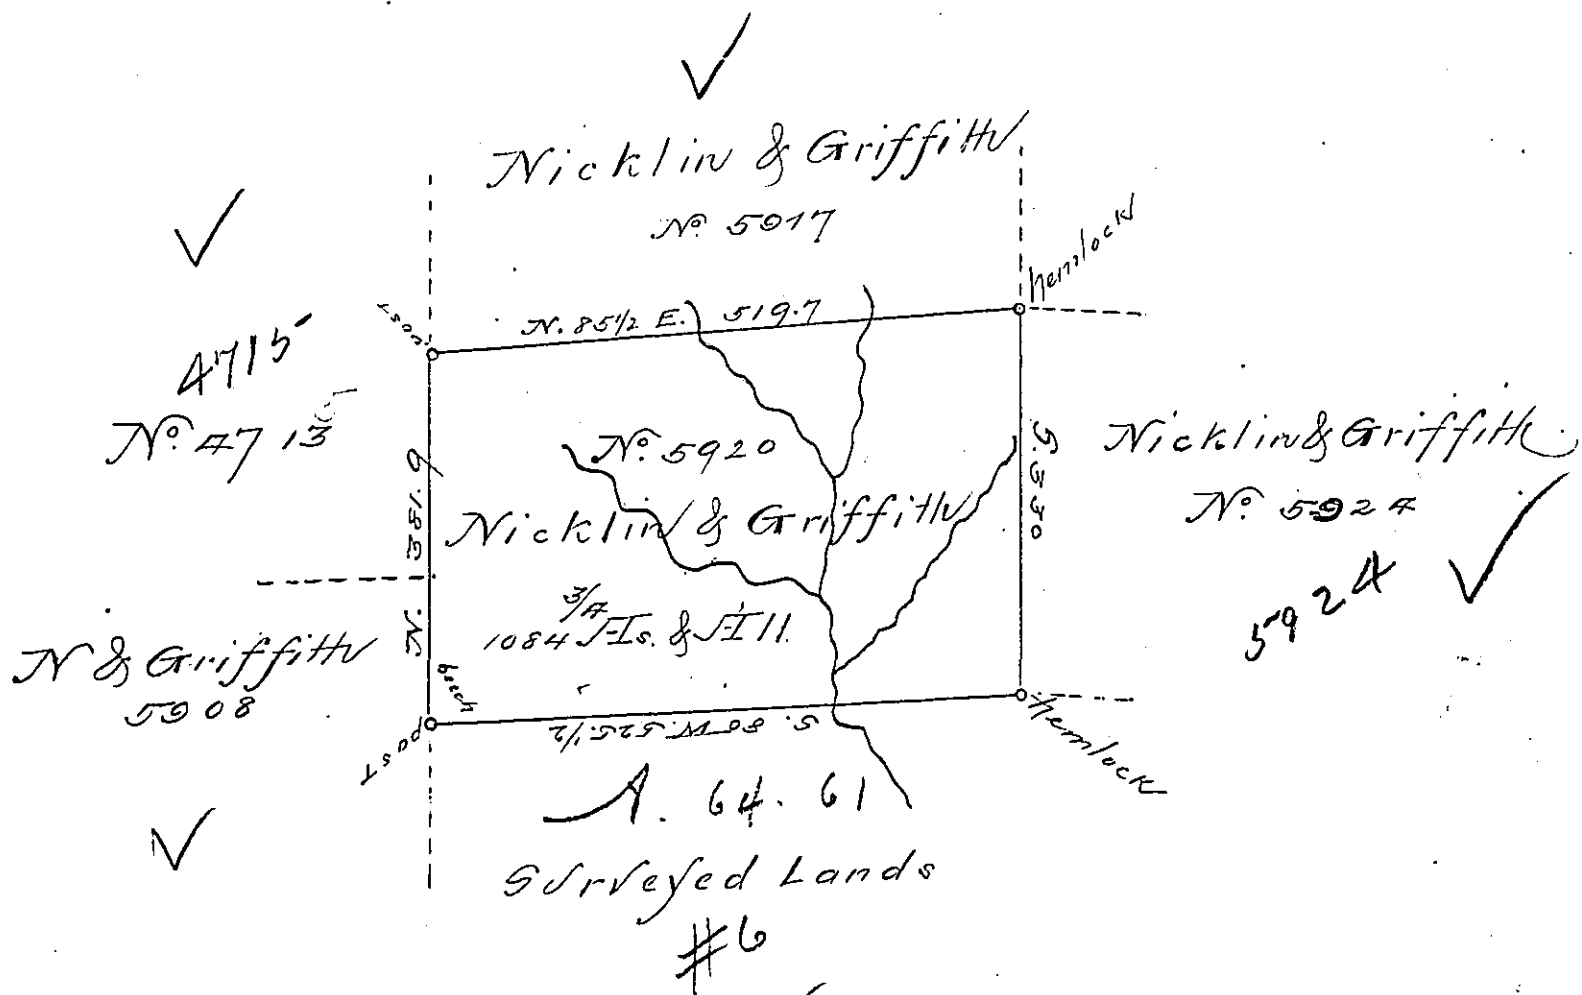 Nicklin & Griffith
No. 5917
hemlock
post
N. 85 1/2 E. 519.7
4715
No. 4713
No. 5920
Nicklin & Griffith
1084 3/4 As. & All.
N. 381.6
S. 330
Nicklin & Griffith
No. 5924
5924
N & Griffith
5908
beech
post
S. 86 W. 525 1/2
hemlock
A. 64. 61
Surveyed Lands
#6